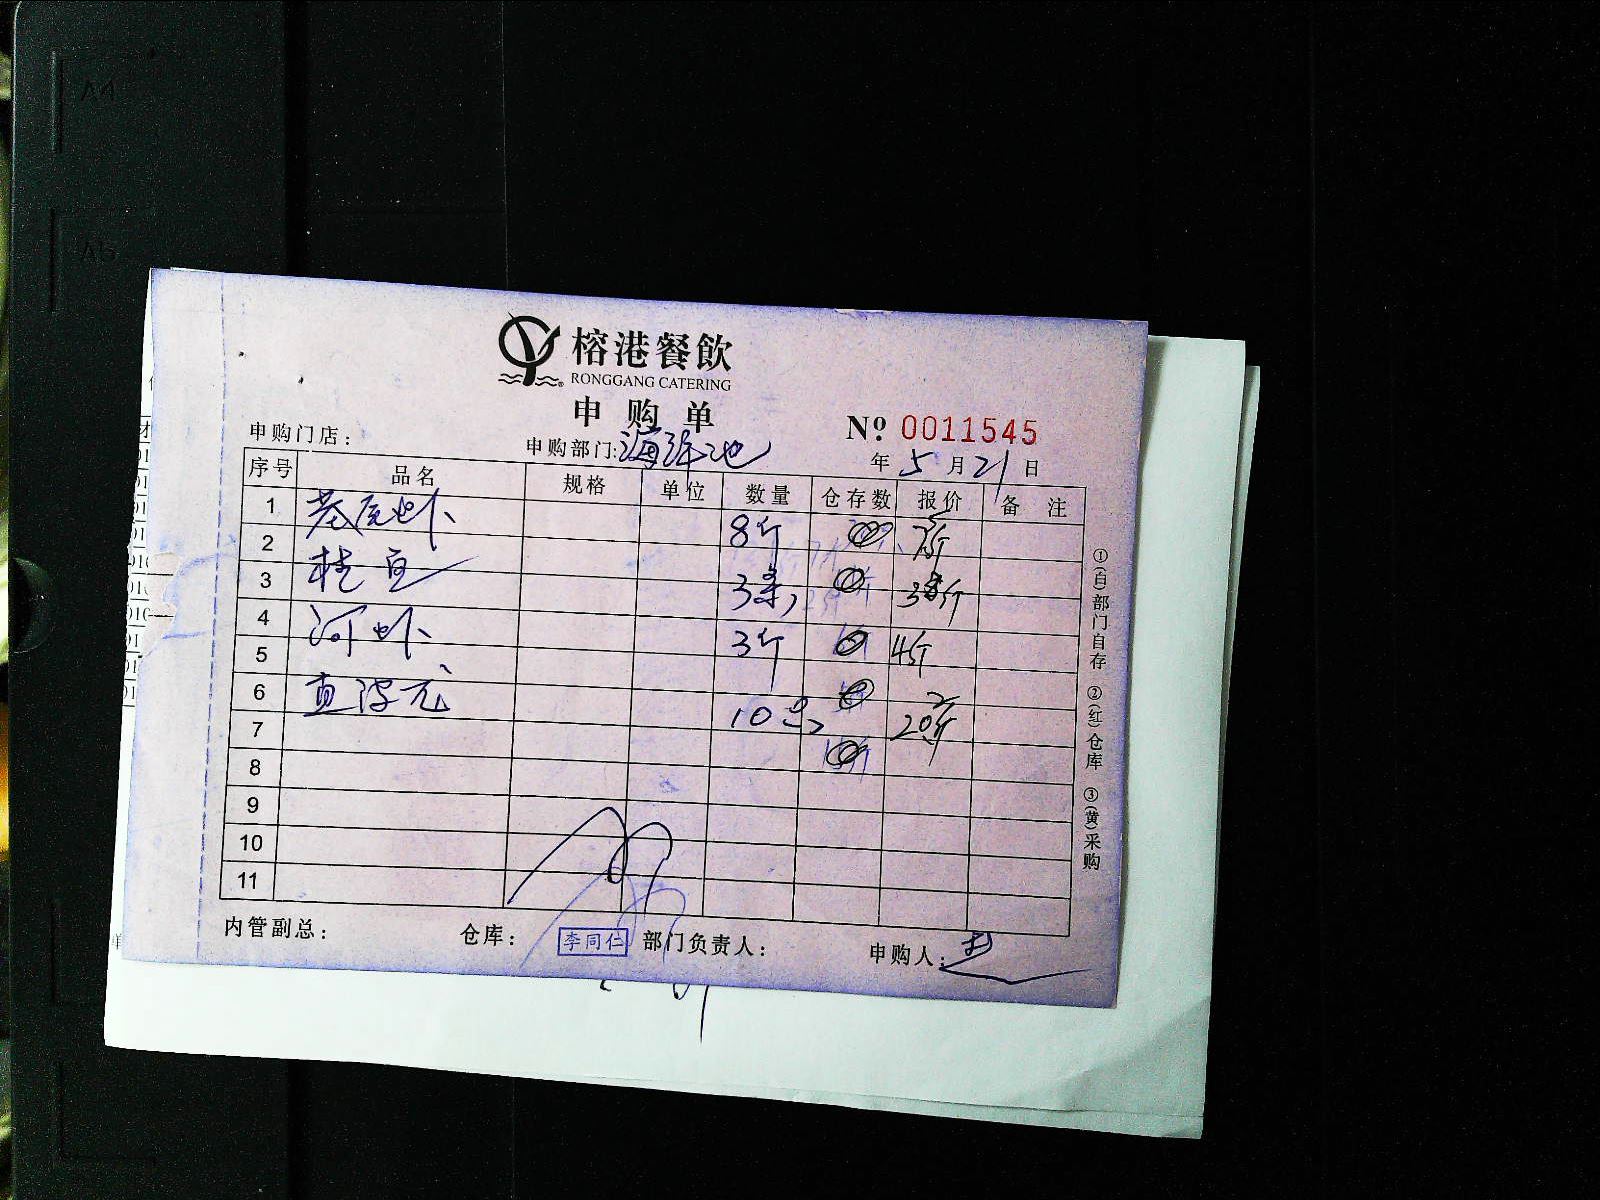 榕港餐飲
RONGGANG CATERING
申购单
№ 0011545
申购门店： 申购部门: 海鲜池 年 5 月 21 日
序号 品名 规格 单位 数量 仓存数 报价 备注
1 基尾虾 8斤
2
3 桂鱼 3条
4 河虾 3斤 4斤
5
6 10条 20斤
7
8
9
10
11
内管副总： 仓库： 李同仁 部门负责人： 申购人：
①(白)部门自存 ②(红)仓库 ③(黄)采购
A4
A5